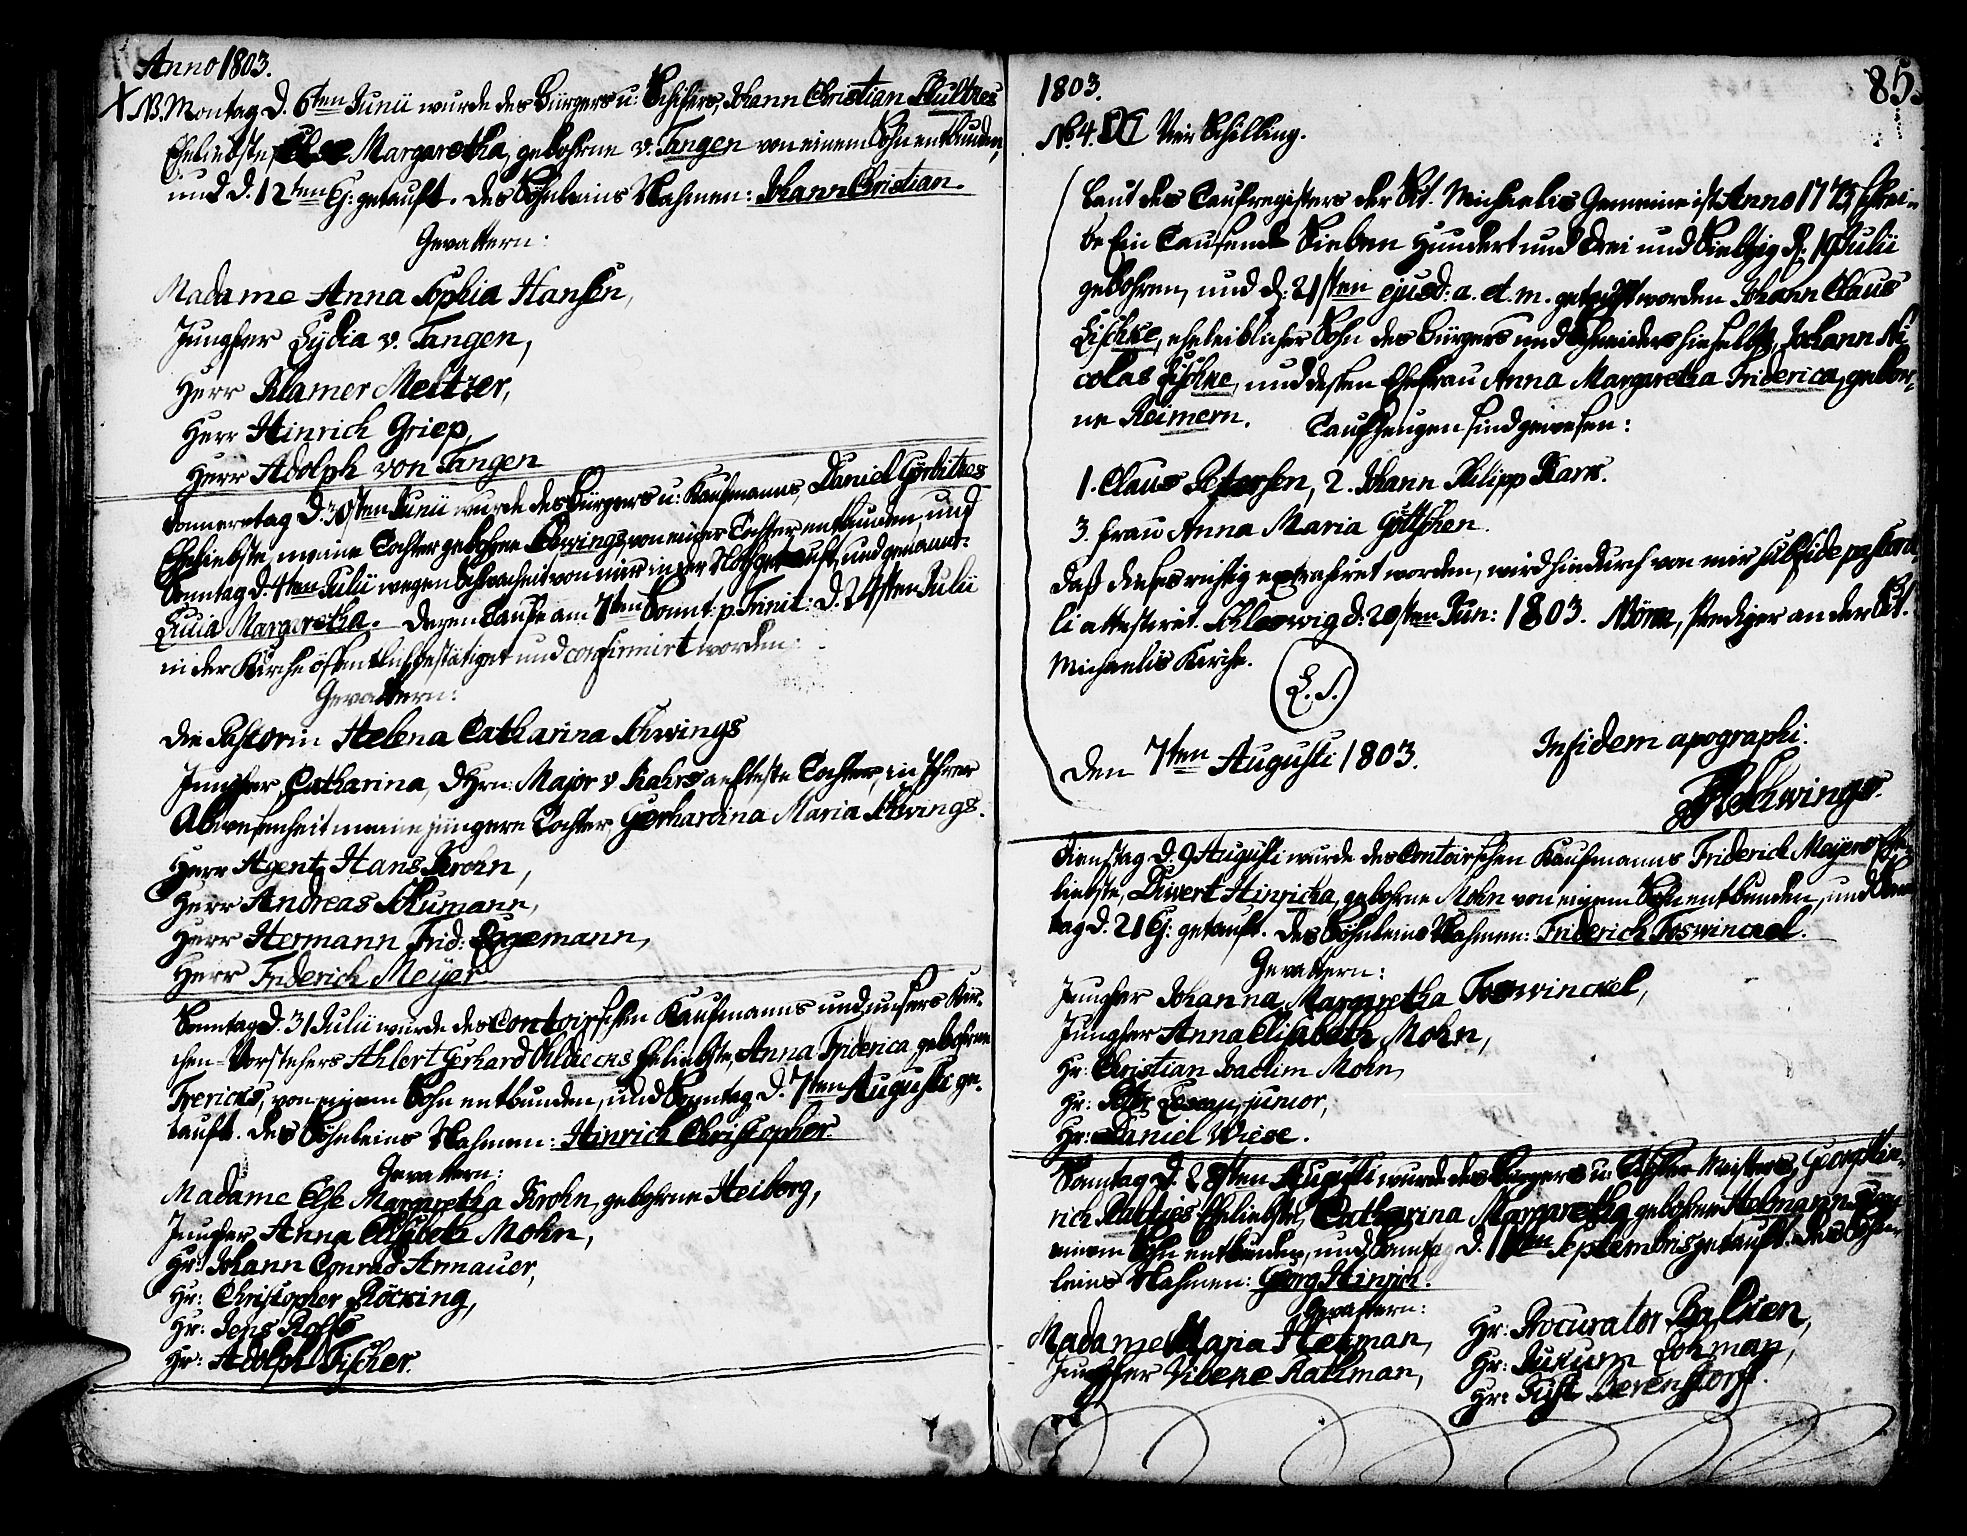 Anno 1803.
X NB. Montag d. 6ten Junii wurde des Bürgers u: Schifers, Johann Christian Schultzes
Eheliebste, Else Margaretha, gebohrne v. Tangen von einem Sohn entbunden,
und d. 12ten Ej: getauft. Des Söhnleins Nahmen: Johann Christian.
Gevattern:
Madame Anna Sophia Hansen,
Jungfer Lydia v. Tangen,
Herr Klamer Meltzer,
Herr Hinrich Griep,
Herr Adolph von Tangen
Donnerstag d. 30sten Junii wurde des Bürgers u: Kaufmanns, Daniel Görbitzes
Eheliebste, meine Tochter gebohrne Schwings, von einer Tochter entbunden, und
Sonntag d. 4ten Julii wegen Schwachheit von mir in der Noth getauft, und genannt:
Lucia Margaretha. Deren Taufe am 7ten Sonnt: p. Trinit: d. 24sten Julii
in der Kirche öffentlich bestätiget und confirmirt worden:
Gevattern:
Die Pastorin Helena Catharina Schwings
Jungfer Catharina, d Hrn: Major v Kahrs aelteste Tochter, in Ihrer
Abwesenheit meine jüngere Tochter, Gerhardina Maria Schwings.
Herr Agent Hans Krohn,
Herr Andreas Schumann,
Herr Hermann Frid: Eggemann,
Herr Friderich Meyer.
Sonntag d. 31 Julii wurde des Contoirschen Kaufmanns und unsers Kir-
chen-Vorstehers Ahlert Gerhard Ohldiecks Eheliebste, Anna Friderica, gebohrne
Frericks, von einem Sohn entbunden, und Sonntag d. 7ten Augusti ge-
tauft. Des Söhnleins Nahmen: Hinrich Christopher.
Gevattern:
Madame Else Margaretha Krohn, gebohrne Heiborg,
Jungfer Anna Elisabeth Mohn,
Hr: Johann Conrad Annauer,
Hr: Christopher Röcking,
Hr: Jens Rolfs
Hr: Adolph Fischer.
1803.
85.
No. 4. Vier Schilling.
Laut des Taufregisters der St. Michaelis Gemeine ist Anno 1773, schrei-
be Ein Tausend Sieben Hundert und Drei und Siebzig d: 19 Julii
gebohren, und d: 21sten ejusd: a. et. m. getauft worden Johann Claus
Lischke, eheleiblicher Sohn des Bürgers und Schneiders hieselbst, Johann Ni
colas Lischke, und dessen Ehefrau Anna Margaretha Friderica, gebor-
ne Reimern. Taufzeugen sind gewesen:
1. Claus Petersen, 2. Johann Philipp Kark.
3. Frau Anna Maria Göttschen.
Daß dieses richtig extrahiret worden, wird hiedurch von mir sub fide pastora
li attestiret. Schleswig d: 20sten Jun: 1803. Prediger an der St.
Michaelis Kirche.
L. S.
Den 7ten Augusti 1803.
In fidem apographi.
Schwings.
Dienstag d. 9 Augusti wurde des Contoirschen Kaufmanns Friderich Meyers Ehe-
liebste, Divert Hinricha, gebohrne Mohn von einem Sohn entbunden, und Sonn
tag d. 21 Ej: getauft. Des Söhnleins Nahmen: Friderich Foswinckel.
Gevattern:
Jungfer Johanna Margaretha Foswinckel,
Jungfer Anna Elisabeth Mohn,
Hr: Christian Joachim Mohn,
Hr: junior,
Hr: Daniel Wiese.
Sonntag d. 28sten Augusti wurde des Bürgers u: Meisters, Georg Hin-
rich Eheliebste, Catharina Margaretha gebohrne Holmann von
einem Sohn entbunden, und Sonntag d. 11ten Septembris getauft. Des Söhn-
leins Nahmen: Georg Hinrich.
Gevattern:
Madame Maria Hetman,
Jungfer Wibeke Kahman,
Hr: Procurator Balken,
Hr: Lohman,
Hr: Just Berenstorff.